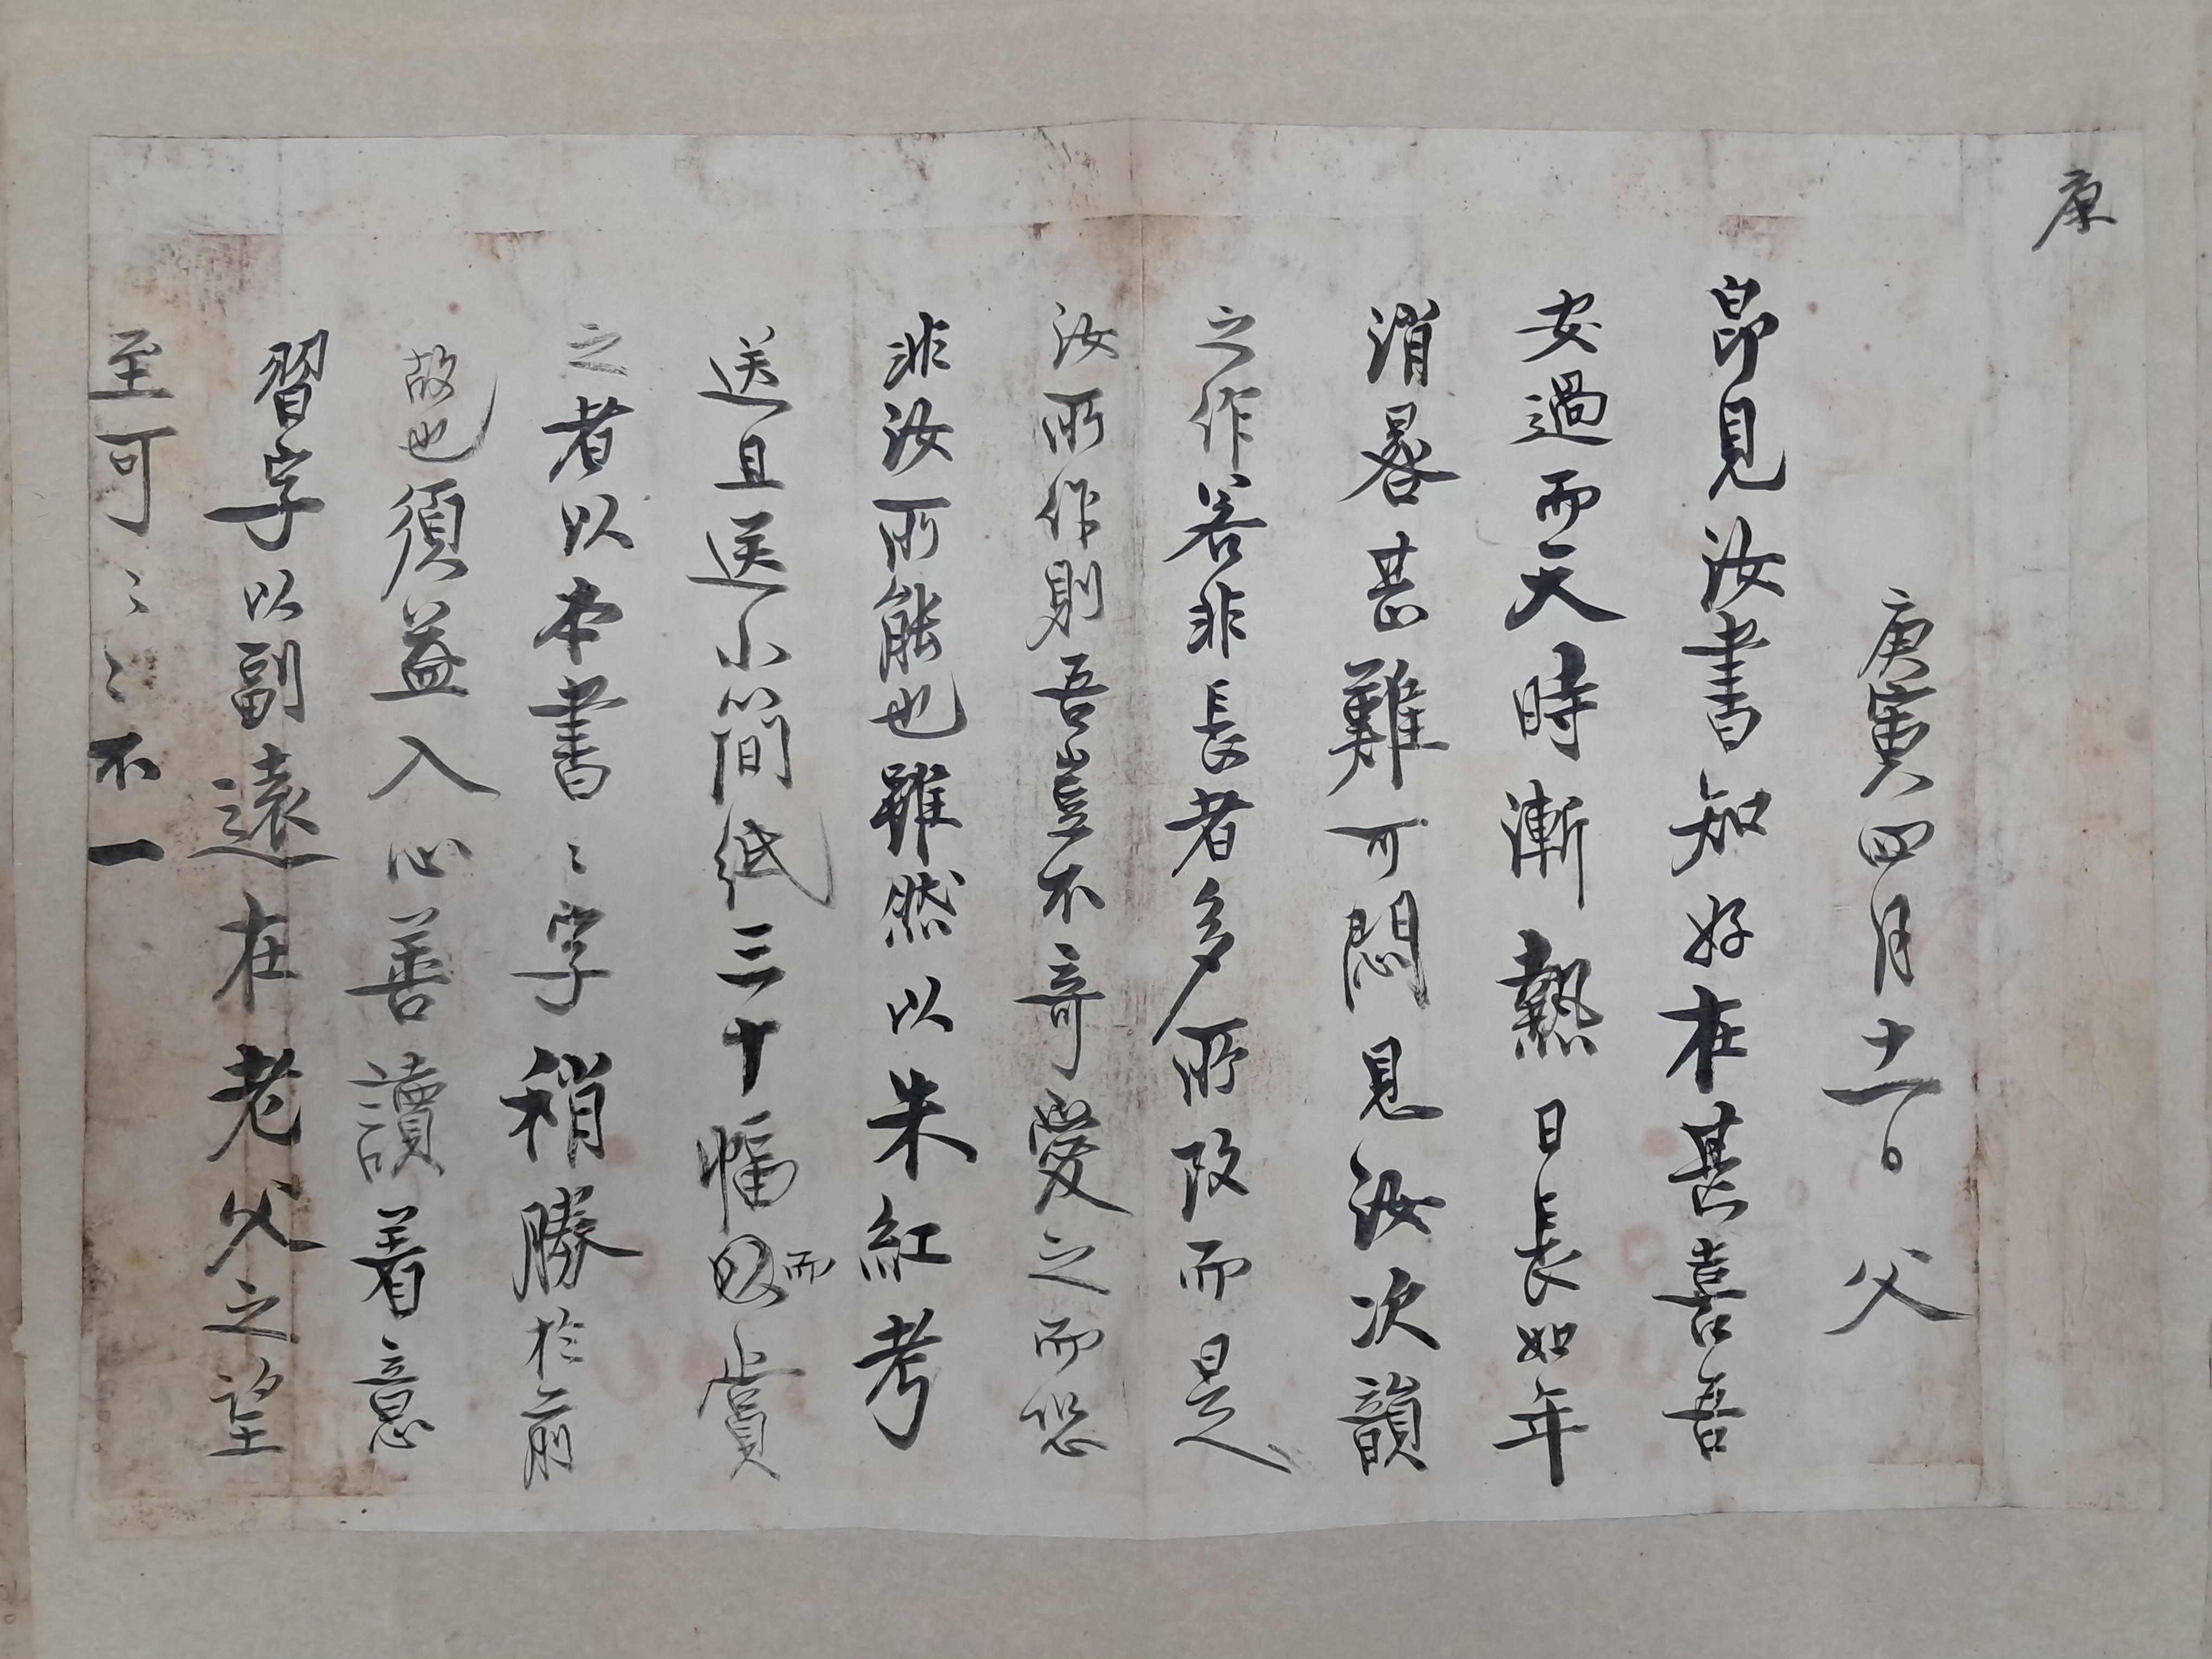 康
庚寅四月十一日 父
卽見汝書知好在甚喜吾
安過而天時漸熱日長如年
消晷甚難可悶見汝次韻
之作若非長者多所改而是
汝所作則吾豈不奇愛之而恐
非汝所能也雖然以朱紅考
送且送小簡紙三十幅而賞
之者以本書〻字稍勝於前
故也須益入心善讀着意
習字以副遠在老父之望
至可〻〻不一